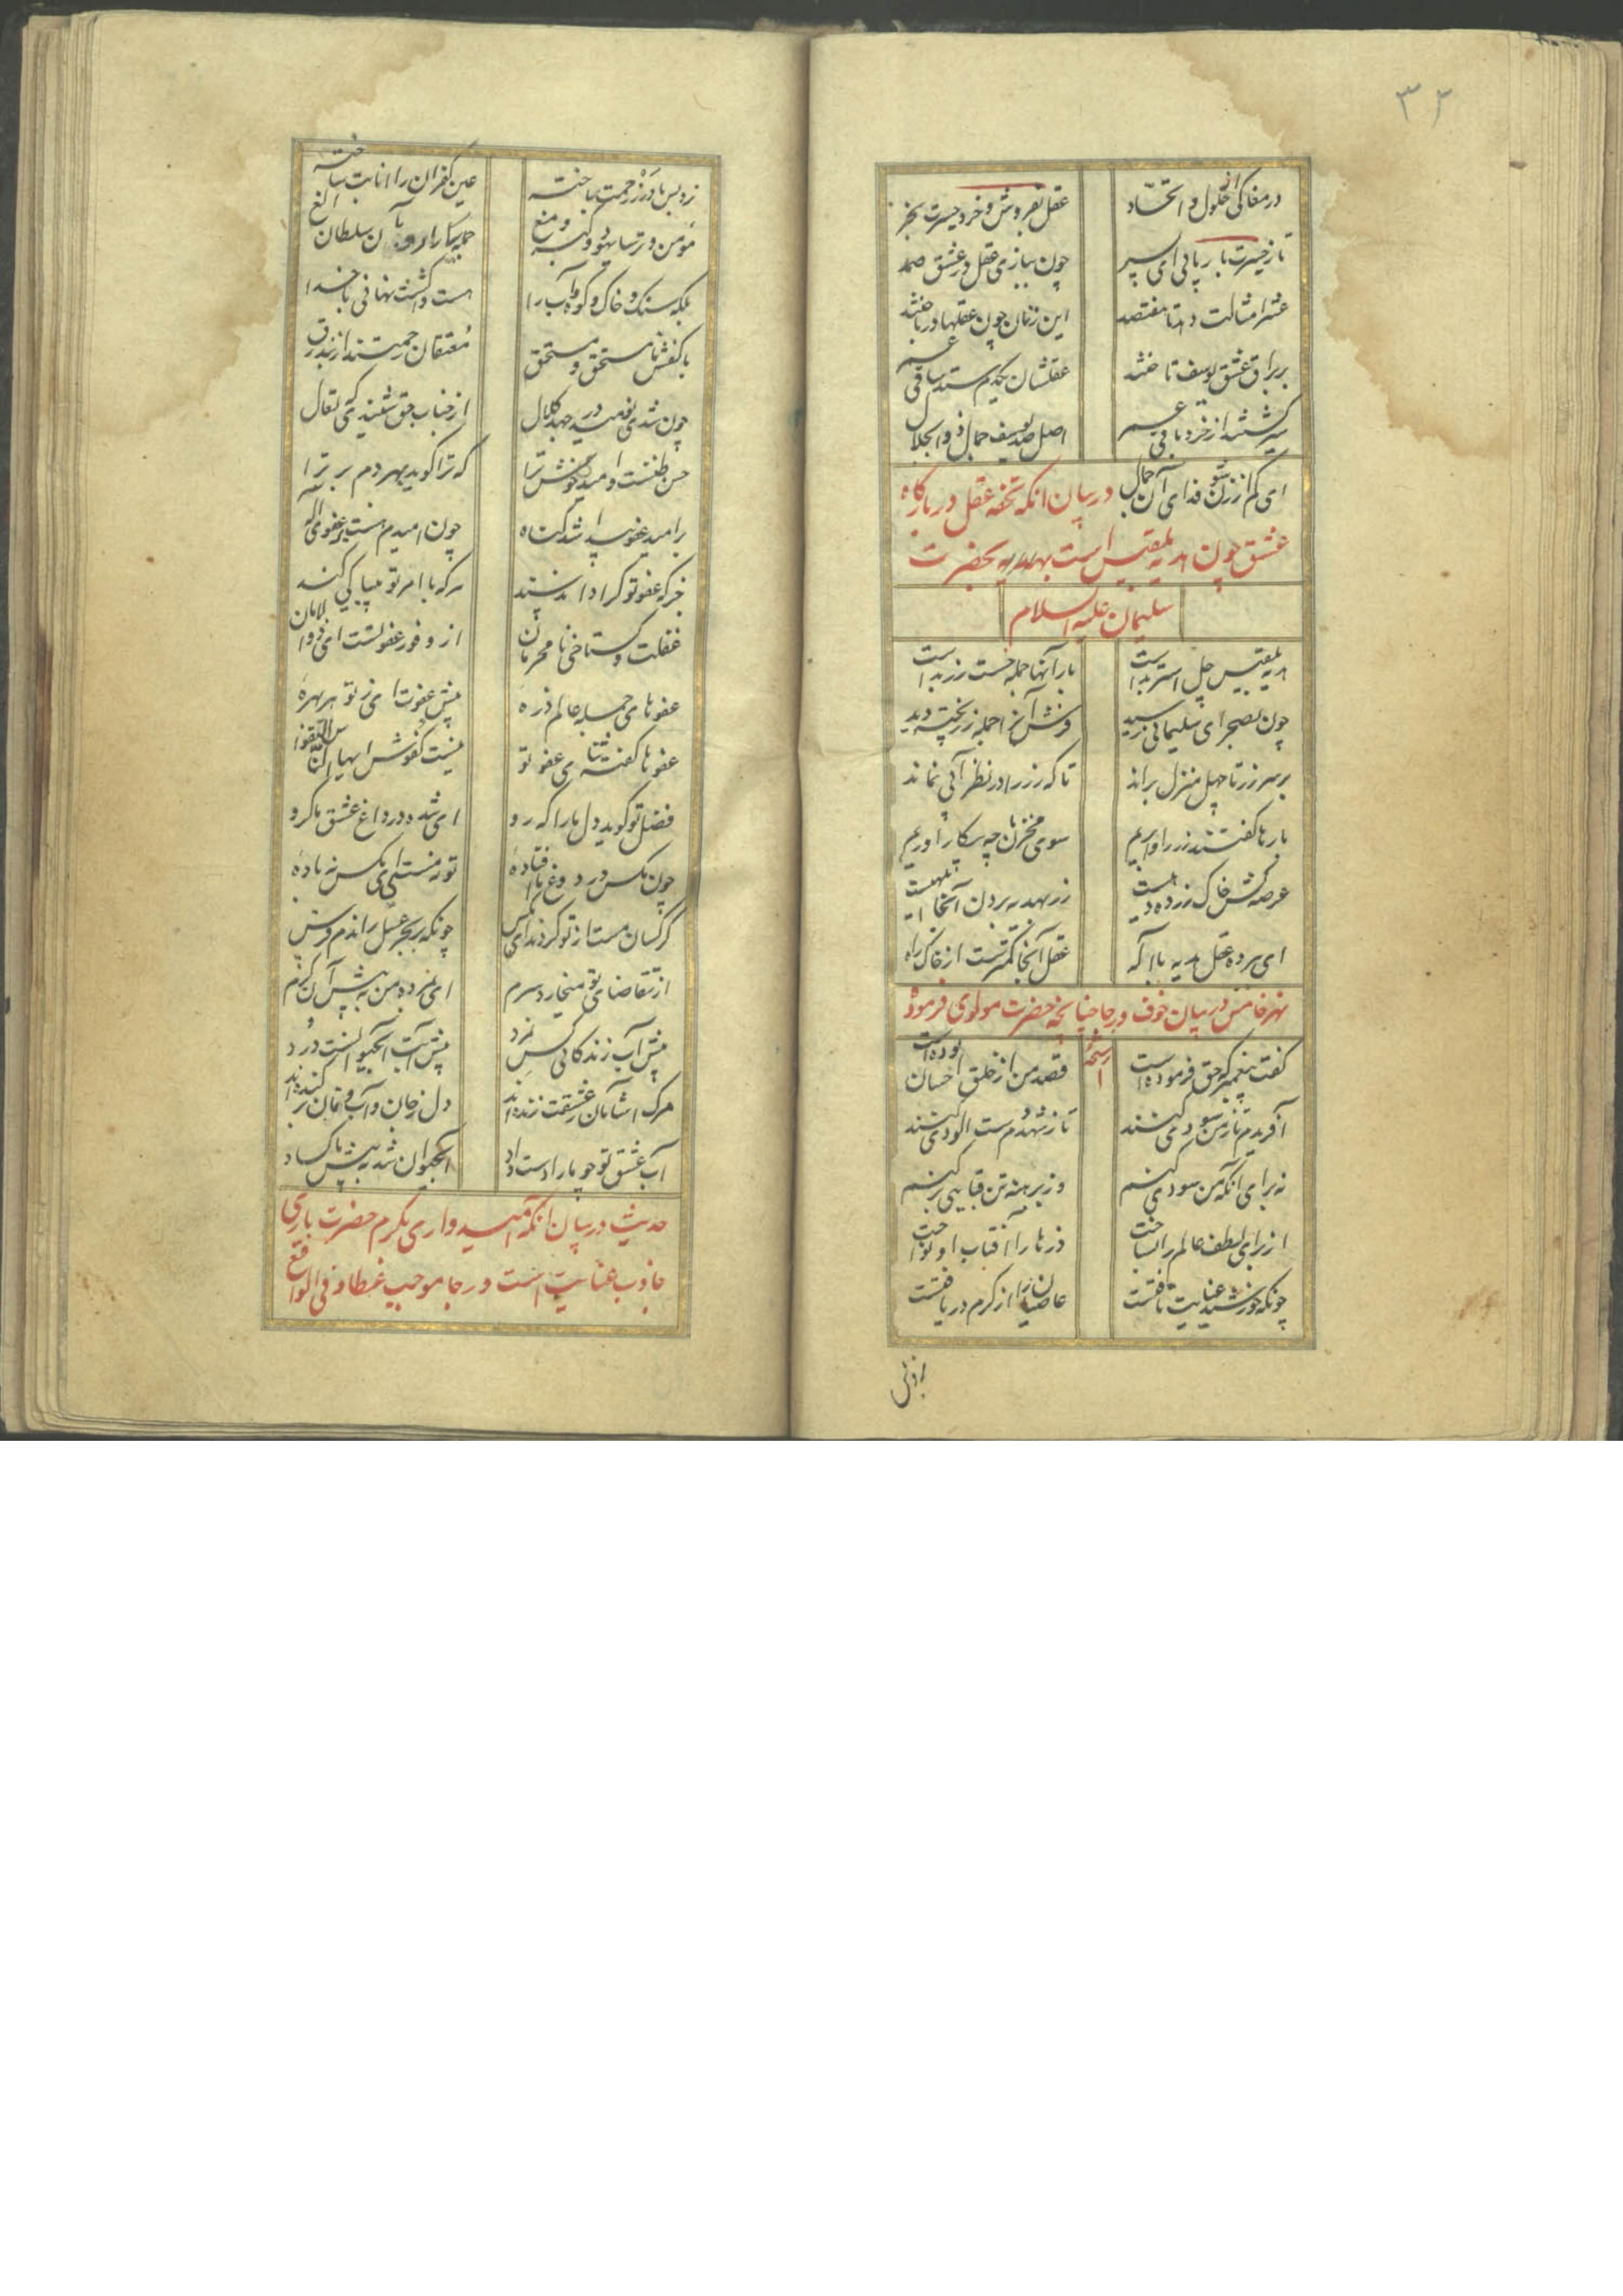 ۳۲
در مغاکی از حلول و اتحاد
عقل بفروش و خرد حیرت بخر
تا ز حیرت بار یابی ای پسر
چون ببازی عقل در عشق صمد
عشر امثالت دهد تا هفتصد
این زمان چون عقلها در باختند
بر براق عشق یوسف تاختند
عقلشان یکدم ستد ساقی عمر
سیر گشتند از خرد باقی عمر
اصل صد یوسف جمال ذوالجلال
ای کم از زن شو فدای آن جمال
در بیان انکه تحفه عقل در بارگاه
عشق چون هدیه بلقیس است بهدیه بحضرت
سلیمان علیه السلام
هدیه بلقیس چل استر بدست
بار آنها جمله خشت زر بدست
چون بصحرای سلیمانی رسید
فرش آنرا جمله زر پخته دید
بر سر زر تا چهل منزل براند
تا که زر را در نظر آبی نماند
بارها گفتند زر را وابریم
سوی مخزن ما چه بیکار اندریم
عرصه کش خاک زر ده دهیست
زر بهدیه بردن آنجا ابلهیست
ای ببرده عقل هدیه با اله
عقل آنجا کمترست از خاک راه
نهر خامس در بیان خوف و رجا چنانچه حضرت مولوی فرموده
گفت پیغمبر که حق فرموده است
رشحه
قصد من از خلق احسان بوده است
آفریدم تا ز من سودی کنند
تا ز شهدم دست الودی کنند
نه برای آنکه من سودی کنم
وز برهنه تن قبایی بر کنم
از برای لطف عالم را بساخت
ذرها را آفتاب او نواخت
چونکه خورشید عنایت تافتست
عاصیان را از کرم دریافتست
عین کفران را انابت ساخته
مؤمن و ترسا یهود و گبر و مغ
جمله را رو به آن سلطان الغ
بلکه سنک و خاک و کوه و آب را
هست واگشت نهانی با خدا
با کفش نامستحق و مستحق
معتقان رحمتند از بند رق
چون شدی نومید در جهد کلال
از جناب حق شنیدی که تعال
حسن ظنست و امید خوش ترا
که ترا گوید بهر دم برتر ا
بر امید عفو پیدا شد گناه
چون امیدم هست بر عفو اله
جز که عفو تو کرا دارد سند
هر که با امر تو بیباکی کند
غفلت و گستاخی نامحرمان
از وفور عفو تست ای ذوالامان
عفوهای جمله عالم ذره
پیش عفوت ای ز تو هر بهره
عفوها گفته ثنای عفو تو
نیست کفوش ایها الناس اتقوا
فضل تو گوید دل ما را که رو
ای شده در داغ عشق ما گرو
چون مکس در دوغ ما افتاده
تو نه مستی ای مکس نه باده
کرکسان مست از تو کردند ای مکس
چونکه بر بحر عسل راندم فرس
از تقاضای تو میخارد سرم
ای بمرده من به پیش آن کرم
پیش آب زندگانی کس نمرد
پیش آبت آبحیوانست درد
مرک اشامان ز عشقت زنده اند
دل ز جان و آب جان بر کنده اند
آب عشق تو چو ما را دست داد
آبحیوان شد به پیش ما کساد
حدیث در بیان انکه امیدواری بکرم حضرت باری
جاذب عنایتست و رجا موجب عطا و فی الواقع